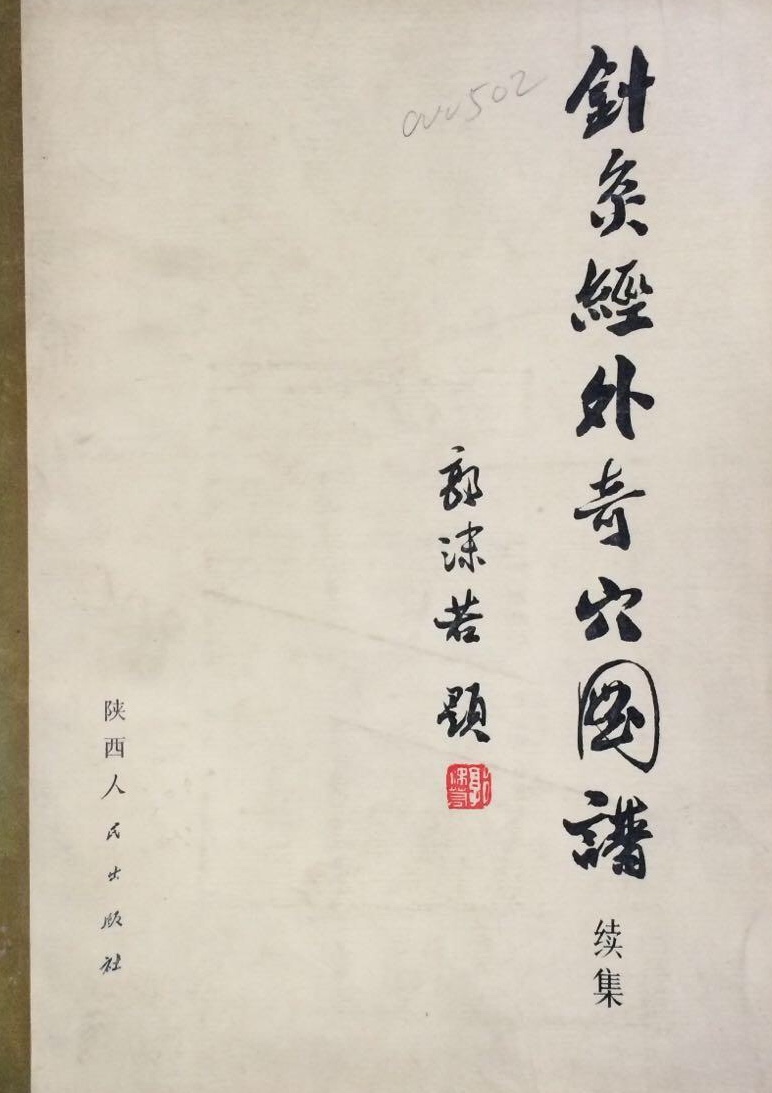 針灸經外奇穴圖譜 续集
郭沫若 題
陕西人民出版社